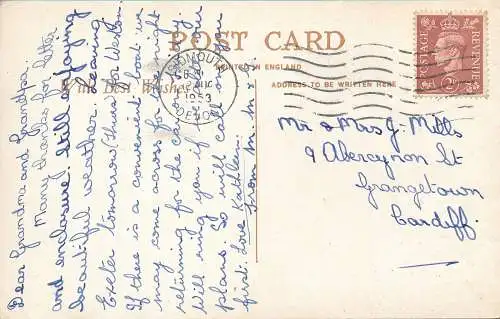 POST CARD
PRINTED IN ENGLAND
With Best Wishes
ADDRESS TO BE WRITTEN HERE
POSTAGE
REVENUE
1953
DEVON
Dear Grandma and Grandpa,
Many thanks for letter
and enclosure. Still enjoying
beautiful weather. Leaving
Exeter tomorrow (Thurs) for Weston.
If there is a convenient boat we
may come across for a night
returning for the car.
Will ring you if
plans. So will call you
first. Love Kathleen.
from M.
Mr & Mrs J. Mills
9 Abercynon St
Grangetown
Cardiff.